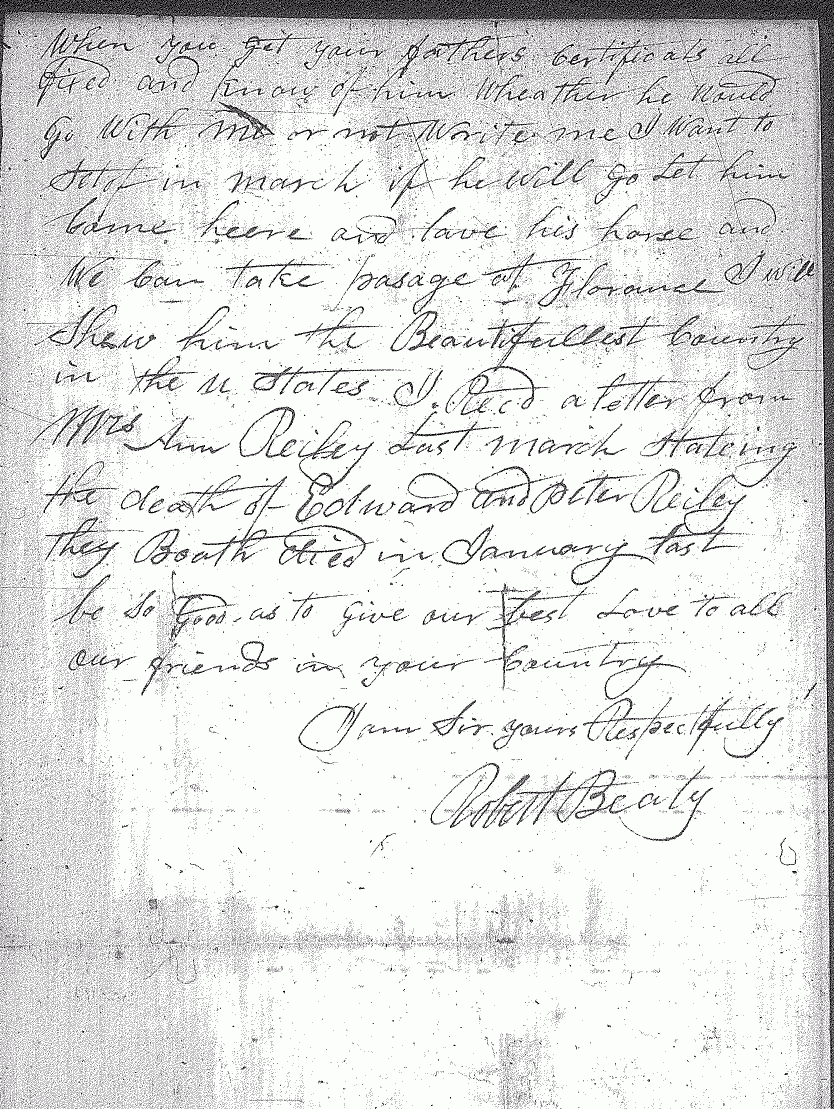 When you get your fathers Certificats all
fixed and know of him Wheather he Would
Go With me or not Write me I Want to
in march if he Will go Let him
Come heere and lave his horse and
We Can take pasage at Florance I will
Shew him the Beautifullest Country
in the u States I Recd a letter from
Mrs Ann Reiley Last march Stateing
the death of Edward and peter Reiley
they Boath died in January last
be So Good as to Give our best Love to all
our friends in your Country
I am Sir yours Respectfully
Robert Beaty